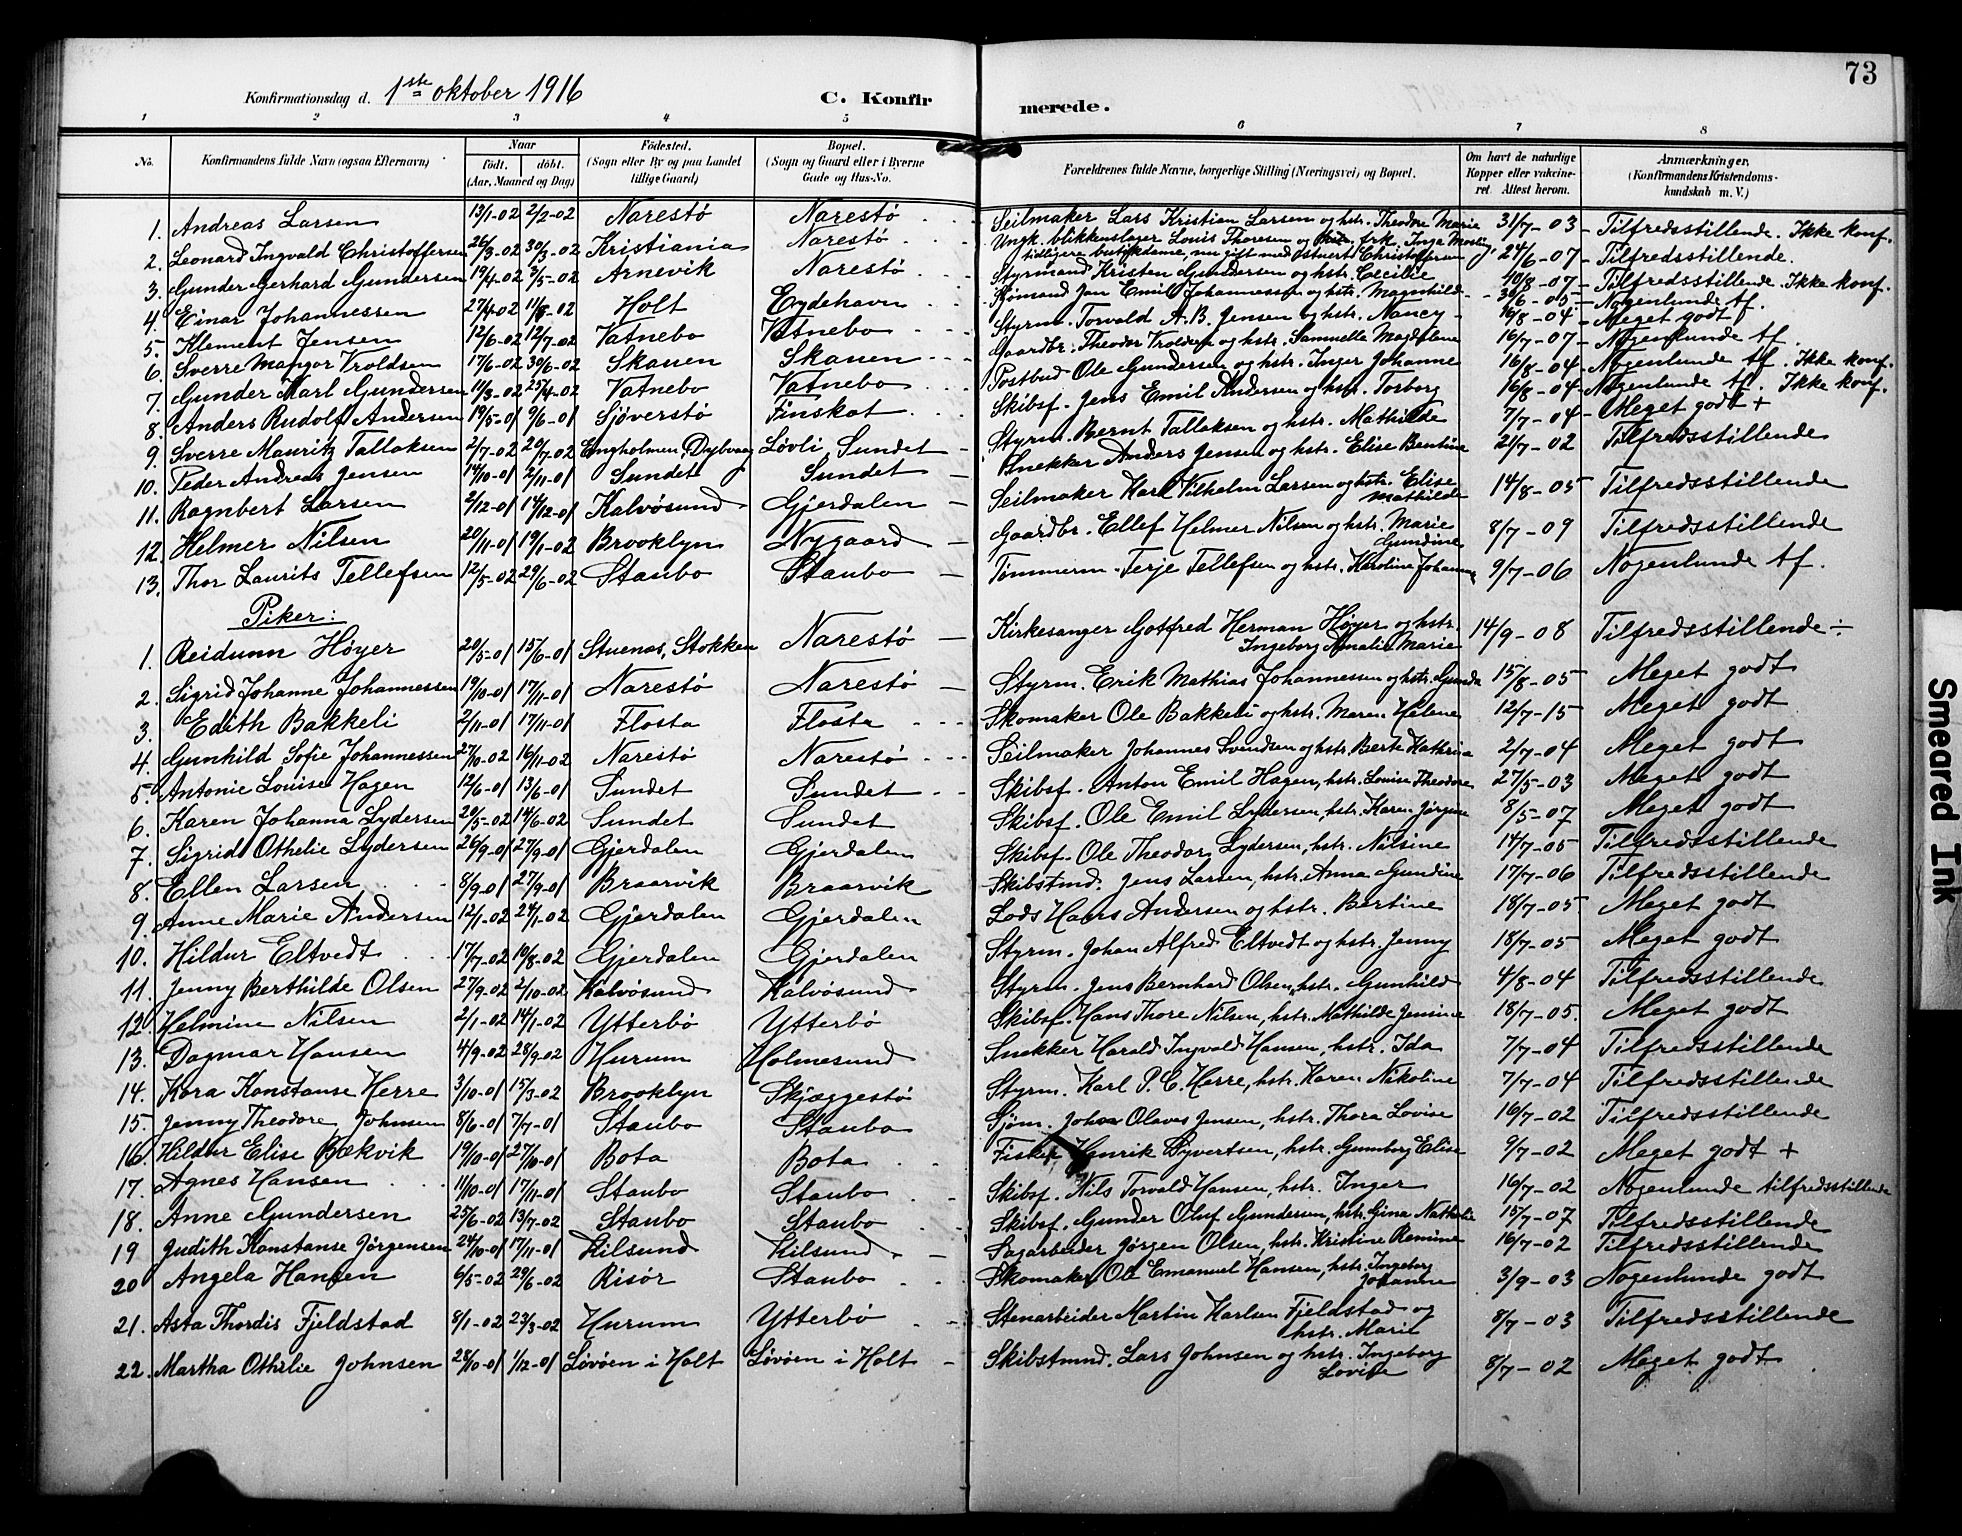 73
Konfirmationsdag d. 1ste oktober 1916 C. Konfir merede.
1 2 3 4 5 6 7 8
No. Konfirmandens fulde Navn (ogsaa Efternavn) Naar født. døbt. (Aar, Maaned og Dag) Fødested. (Sogn eller By og paa Landet tillige Gaard) Bopæl. (Sogn og Gaard eller i Byerne Gade og Hus-No. Forældrenes fulde Navne, borgerlige Stilling (Næringsvei) og Bopæl. Om havt de naturlige Kopper eller vakcineret. Attest herom. Anmærkninger. (Konfirmandens Kristendomskundskab m. V.)
1. Andreas Larsen 13/1-02 2/2-02 Narestø Narestø Seilmaker Lars Kristian Larsen og hstr. Theodore Marie 31/7-03 Tilfredsstillende. Ikke konf.
2. Leonard Ingvald Christoffersen 26/3-02 30/3-02 Kristiania Narestø Ungk. blikkenslager Louis Thoresen og frk. Inga
tidligere butikdame, nu gift med Christoffersen 24/6-07 Tilfredsstillende.
3. Gunder Gerhard Gundersen 19/4-02 3/5-02 Arnevik Narestø Styrmand Kristen Gundersen og hstr. Cecilie -07 Tilfredsstillende. Ikke konf.
4. Einar Johannessen 27/4-02 11/8-02 Holt Eydehavn Sjømand Jan Emil Johannessen og hstr. Magnhild -05 Nogenlunde tf.
5. Klement Jensen 12/6-02 12/7-02 Vatnebo Vatnebo Styrm. Torvald A. B. Jensen og hstr. Nancy 16/8-04 Meget godt
6. Sverre Mangor Vroldsen 17/6-02 30/6-02 Skauen Skauen Gaardbr. Theodor Vroldsen og hstr. Samuelle Magdalene 16/7-07 Nogenlunde tf.
7. Gunder Karl Gundersen 11/3-02 25/4-02 Vatnebo Vatnebo Postbud Ole Gundersen og hstr. Inger Johanne 16/8-04 Nogenlunde tf. Ikke konf.
8. Anders Rudolf Andersen 19/5-01 9/6-01 Sjöverstø Finskot Skibsf. Jens Emil Andersen og hstr. Torborg 16/8-04 Nogenlunde tf. Ikke konf.
9. Sverre Mauritz Tallaksen 2/7-02 20/7-02 Engholmen, Dybvaag Løvli Sundet Styrm. Bernt Tallaksen og hstr. Mathilde 7/7-04 Meget godt +
10. Peder Andreas Jensen 14/10-01 2/11-01 Sundet Sundet Snekker Anders Jensen og hstr. Elise Bentine 21/7-02 Tilfredsstillende
11. Ragnbert Larsen 2/12-01 14/12-01 Kalvøsund Gjerdalen Seilmaker Karl Vilhelm Larsen og hstr. Elise Mathilde 14/8-05 Tilfredsstillende
12. Helmer Nilsen 20/11-01 19/1-02 Brooklyn Nygaard Gaardbr. Ellef Helmer Nilsen og hstr. Marie Gundine 8/7-09 Tilfredsstillende
13. Thor Laurits Tellefsen 12/5-02 29/6-02 Staubo Staubo Tømmerm. Terje Tellefsen og hstr. Karoline Johanne 9/7-06 Nogenlunde tf.
Piker:
1. Reidunn Høyer 20/5-01 15/6-01 Stuenes, Stokken Narestø Kirkesanger Gotfred Herman Høyer og hstr. Ingeborg Amalie Marie 14/9-08 Tilfredsstillende ÷
2. Sigrid Johanne Johannessen 19/10-01 17/11-01 Narestø Narestø Styrm. Erik Mathias Johannessen og hstr. Gunda 15/8-05 Meget godt
3. Edith Bakkeli 2/11-01 17/11-01 Flosta Flosta Skomaker Ole Bakkeli og hstr. Maren Helene 12/7-15 Meget godt
4. Gunhild Sofie Johannessen 27/10-02 16/11-02 Narestø Narestø Seilmaker Johannes Svendsen og hstr. Berte Kathrine 2/7-04 Meget godt
5. Antonie Louise Hagen 12/6-01 13/6-01 Sundet Sundet Skibsf. Anton Emil Hagen, hstr. Louise Theodore 27/5-03 Meget godt
6. Karen Johanna Lydersen 20/5-02 14/6-02 Sundet Sundet Skibsf. Ole Emil Lydersen, hstr. Karen Jørgine 8/5-07 Meget godt
7. Sigrid Othelie Lydersen 26/9-01 27/9-01 Gjerdalen Gjerdalen Skibsf. Ole Theodor Lydersen, hstr. Nilsine 14/7-05 Tilfredsstillende
8. Ellen Larsen 8/9-01 27/9-01 Braarvik Braarvik Skibstmd. Jens Larsen, hstr. Anna Gundine 17/7-06 Tilfredsstillende
9. Anne Marie Andersen 12/1-02 24/1-02 Gjerdalen Gjerdalen Lods Hans Andersen og hstr. Bertine 18/7-05 Meget godt
10. Hildur Eltvedt 17/7-02 10/8-02 Gjerdalen Gjerdalen Styrm. Johan Alfred Eltvedt og hstr. Jenny 18/7-05 Meget godt
11. Jenny Berthilde Olsen 27/9-02 2/10-02 Kalvøsund Kalvøsund Styrm. Jens Bernhard Olsen, hstr. Gunhild 4/8-04 Tilfredsstillende
12. Helmine Nilsen 2/1-02 14/1-02 Ytterbø Ytterbø Skibsf. Hans Thore Nilsen, hstr. Mathilde Jensine 18/7-05. Meget godt
13. Dagmar Hansen 4/9-02 28/9-02 Hurum Holmesund Snekker Harald Ingvald Hansen, hstr. Ida 7/7-04 Tilfredsstillende
14. Kora Konstanse Herre 3/10-01 15/3-02 Brooklyn Skjæggestø Styrm. Karl P. C. Herre, hstr. Karen Nikoline 7/7-04 Tilfredsstillende
15. Jenny Theodore Johnsen 8/6-01 7/7-01 Staubo Staubo Sjøm. Johan Olaves Jensen, hstr. Thora Lovise 16/7-02 Tilfredsstillende
16. Hildur Elise Bækvik 19/10-01 27/10-01 Bota Bota Fisker Henrik Syvertsen, hstr. Gunborg Elise 9/7-02 Meget godt +
17. Agnes Hansen 11/10-01 17/11-01 Staubo Staubo Skibsf. Nils Torvald Hansen, hstr. Inger 16/7-02 Nogenlunde tilfredsstillende
18. Anne Gundersen 25/6-02 13/7-02 Staubo Staubo Skibsf. Gunder Oluf Gundersen, hstr. Gina Nathalie 15/7-07 Tilfredsstillende
19 Judith Konstanse Jørgensen 24/10-01 17/11-01 Kilsund Kilsund Sagarbeider Jørgen Olsen, hstr. Kristine Remine 16/7-02 Tilfredsstillende
20 Angela Hansen 6/5-02 29/6-02 Risør Staubo Skomaker Ole Emanuel Hansen, hstr. Ingeborg Johanne 3/9-03 Nogenlunde godt
21. Asta Thordis Fjeldstad 8/1-02 23/3-02 Hurum Ytterbø Stenarbeider Martin Karlsen Fjeldstad og hstr. Marie 8/7-03 Tilfredsstillende
22. Martha Othelie Johnsen 28/10-01 1/12-01 Løvøen i Holt Løvøen i Holt Skibstmd. Lars Johnsen og hstr. Ingeborg Lovise 8/7-02 Meget godt
Smeared Ink